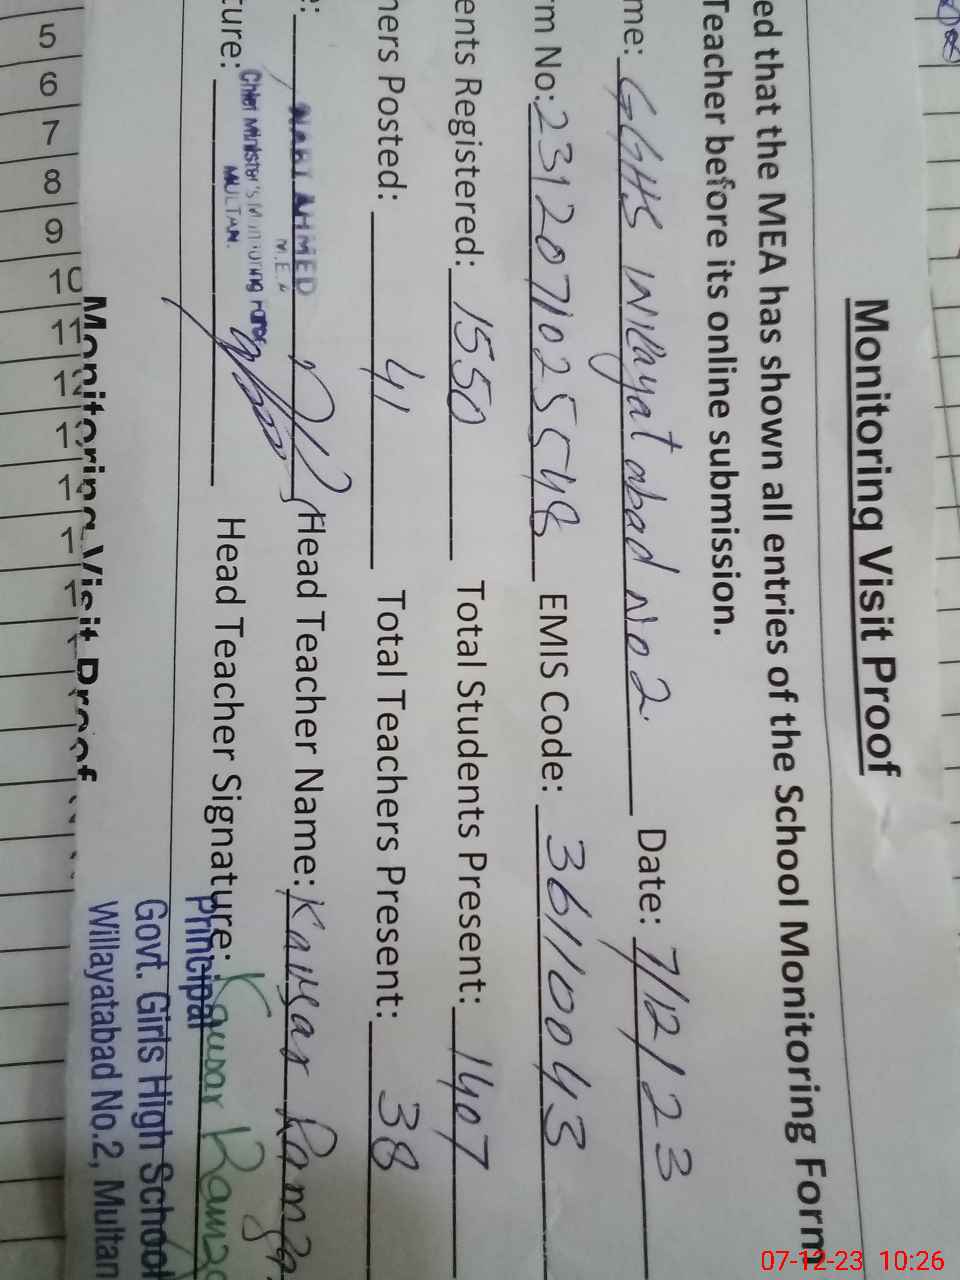 Monitoring Visit Proof
ed that the MEA has shown all entries of the School Monitoring Form
Teacher before its online submission.
me: GGHS Willayat abad No 2 Date: 7/12/23
rm No: 2312071025548 EMIS Code: 36110043
ents Registered: 1550 Total Students Present: 1407
hers Posted: 41 Total Teachers Present: 38
e: NABI AHMED Head Teacher Name: Kausar Ramzan
M.E.A
ture: Chief Minister's Monitoring Force Head Teacher Signature: Kausar Ramza
MULTAN.
Principal
Govt. Girls High School
Willayatabad No.2, Multan
Monitoring Visit Proof
5
6
7
8
9
10
11
12
07-12-23 10:26